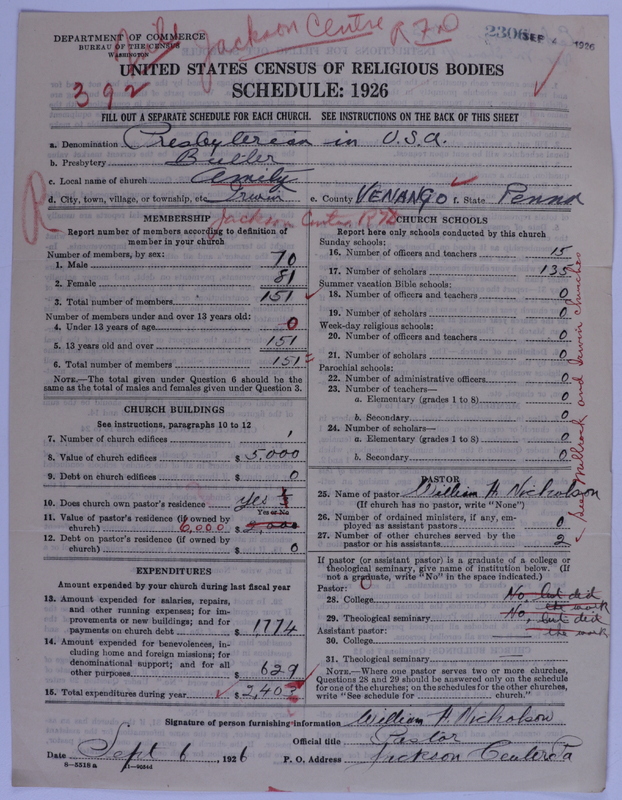 DEPARTMENT OF COMMERCE
BUREAU OF THE CENSUS
WASHINGTON
Jackson Centre R7D
2306
SEP 1926
392
UNITED STATES CENSUS OF RELIGIOUS BODIES
SCHEDULE: 1926
FILL OUT A SEPARATE SCHEDULE FOR EACH CHURCH. SEE INSTRUCTIONS ON THE BACK OF THIS SHEET
a. Denomination Presbyterian in U.S.A.
b. Presbytery Butler
c. Local name of church Amity
d. City, town, village, or township, etc. Irwin e. County VENANGO f. State Penna
R
Jackson Centre R7D
MEMBERSHIP
Report number of members according to definition of member in your church
Number of members, by sex:
1. Male 70
2. Female 81
3. Total number of members 151
Number of members under and over 13 years old:
4. Under 13 years of age 0
5. 13 years old and over 151
6. Total number of members 151
NOTE.—The total given under Question 6 should be the
same as the total of males and females given under Question 3.
CHURCH BUILDINGS
See instructions, paragraphs 10 to 12
7. Number of church edifices 1
8. Value of church edifices $ 5,000
9. Debt on church edifices $ 0
10. Does church own pastor's residence yes 1/3
Yes or No
11. Value of pastor's residence (if owned by
church) 6,000 $ 2,000
12. Debt on pastor's residence (if owned by
church) $ 0
EXPENDITURES
Amount expended by your church during last fiscal year
13. Amount expended for salaries, repairs,
and other running expenses; for im-
provements or new buildings; and for
payments on church debt $ 1774
14. Amount expended for benevolences, in-
cluding home and foreign missions; for
denominational support; and for all
other purposes $ 629
15. Total expenditures during year $ 2,403
CHURCH SCHOOLS
Report here only schools conducted by this church
Sunday schools:
16. Number of officers and teachers 15
17. Number of scholars 135
Summer vacation Bible schools:
18. Number of officers and teachers 0
19. Number of scholars 0
Week-day religious schools:
20. Number of officers and teachers 0
21. Number of scholars 0
Parochial schools:
22. Number of administrative officers 0
23. Number of teachers—
a. Elementary (grades 1 to 8) 0
b. Secondary 0
24. Number of scholars—
a. Elementary (grades 1 to 8) 0
b. Secondary 0
PASTOR
25. Name of pastor William H. Nicholson
(If church has no pastor, write "None")
26. Number of ordained ministers, if any, em-
ployed as assistant pastors 0
27. Number of other churches served by the
pastor or his assistants 2
See Millbrook and Irwin churches
If pastor (or assistant pastor) is a graduate of a college or
theological seminary, give name of institution below. (If
not a graduate, write "No" in the space indicated.)
Pastor:
28. College No but did the work
29. Theological seminary No, but did the work
Assistant pastor:
30. College
31. Theological seminary
NOTE.—Where one pastor serves two or more churches,
Questions 28 and 29 should be answered only on the schedule
for one of the churches; on the schedules for the other churches,
write "See schedule for church."
Signature of person furnishing information William H. Nicholson
Official title Pastor
Date Sept 6, 1926 P. O. Address Jackson Center Pa
8—5518 a